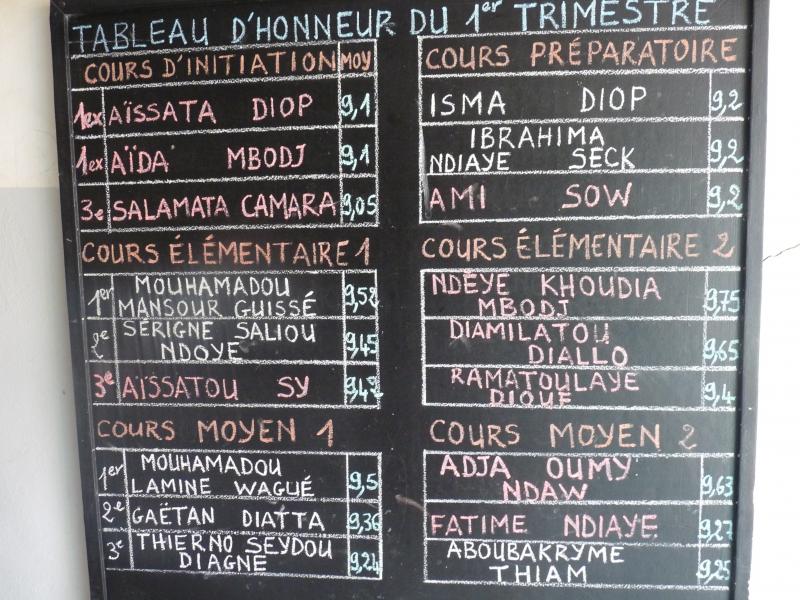 TABLEAU D'HONNEUR DU 1er TRIMESTRE
COURS D'INITIATION MOY
1ex AÏSSATA DIOP 9,1
1ex AÏDA MBODJ 9,1
3e SALAMATA CAMARA 9,05
COURS PRÉPARATOIRE
ISMA DIOP 9,2
IBRAHIMA
NDIAYE SECK 9,2
AMI SOW 9,2
COURS ÉLÉMENTAIRE 1
1er MOUHAMADOU
MANSOUR GUISSÉ 9,52
2e SÉRIGNE SALIOU
NDOYE 9,45
3e AÏSSATOU SY
COURS ÉLÉMENTAIRE 2
NDÈYE KHOUDIA
MBODJ 9,75
DIAMILATOU
DIALLO 9,65
RAMATOULAYE
DIOUF 9,4
COURS MOYEN 1
1er MOUHAMADOU
LAMINE WAGUÉ 9,5
2e GAËTAN DIATTA 9,36
3e THIERNO SEYDOU
DIAGNE 9,24
COURS MOYEN 2
ADJA OUMY
NDAW 9,63
FATIME NDIAYE 9,27
ABOUBAKRYME
THIAM 9,25